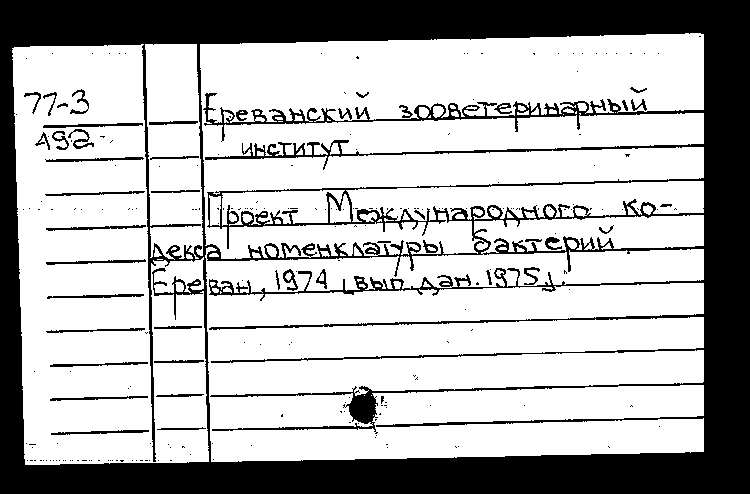 77-3
492
Ереванский зооветеринарный
институт.
Проект Международного ко-
декса номенклатуры бактерий.
Ереван, 1974 [вып. дан. 1975].